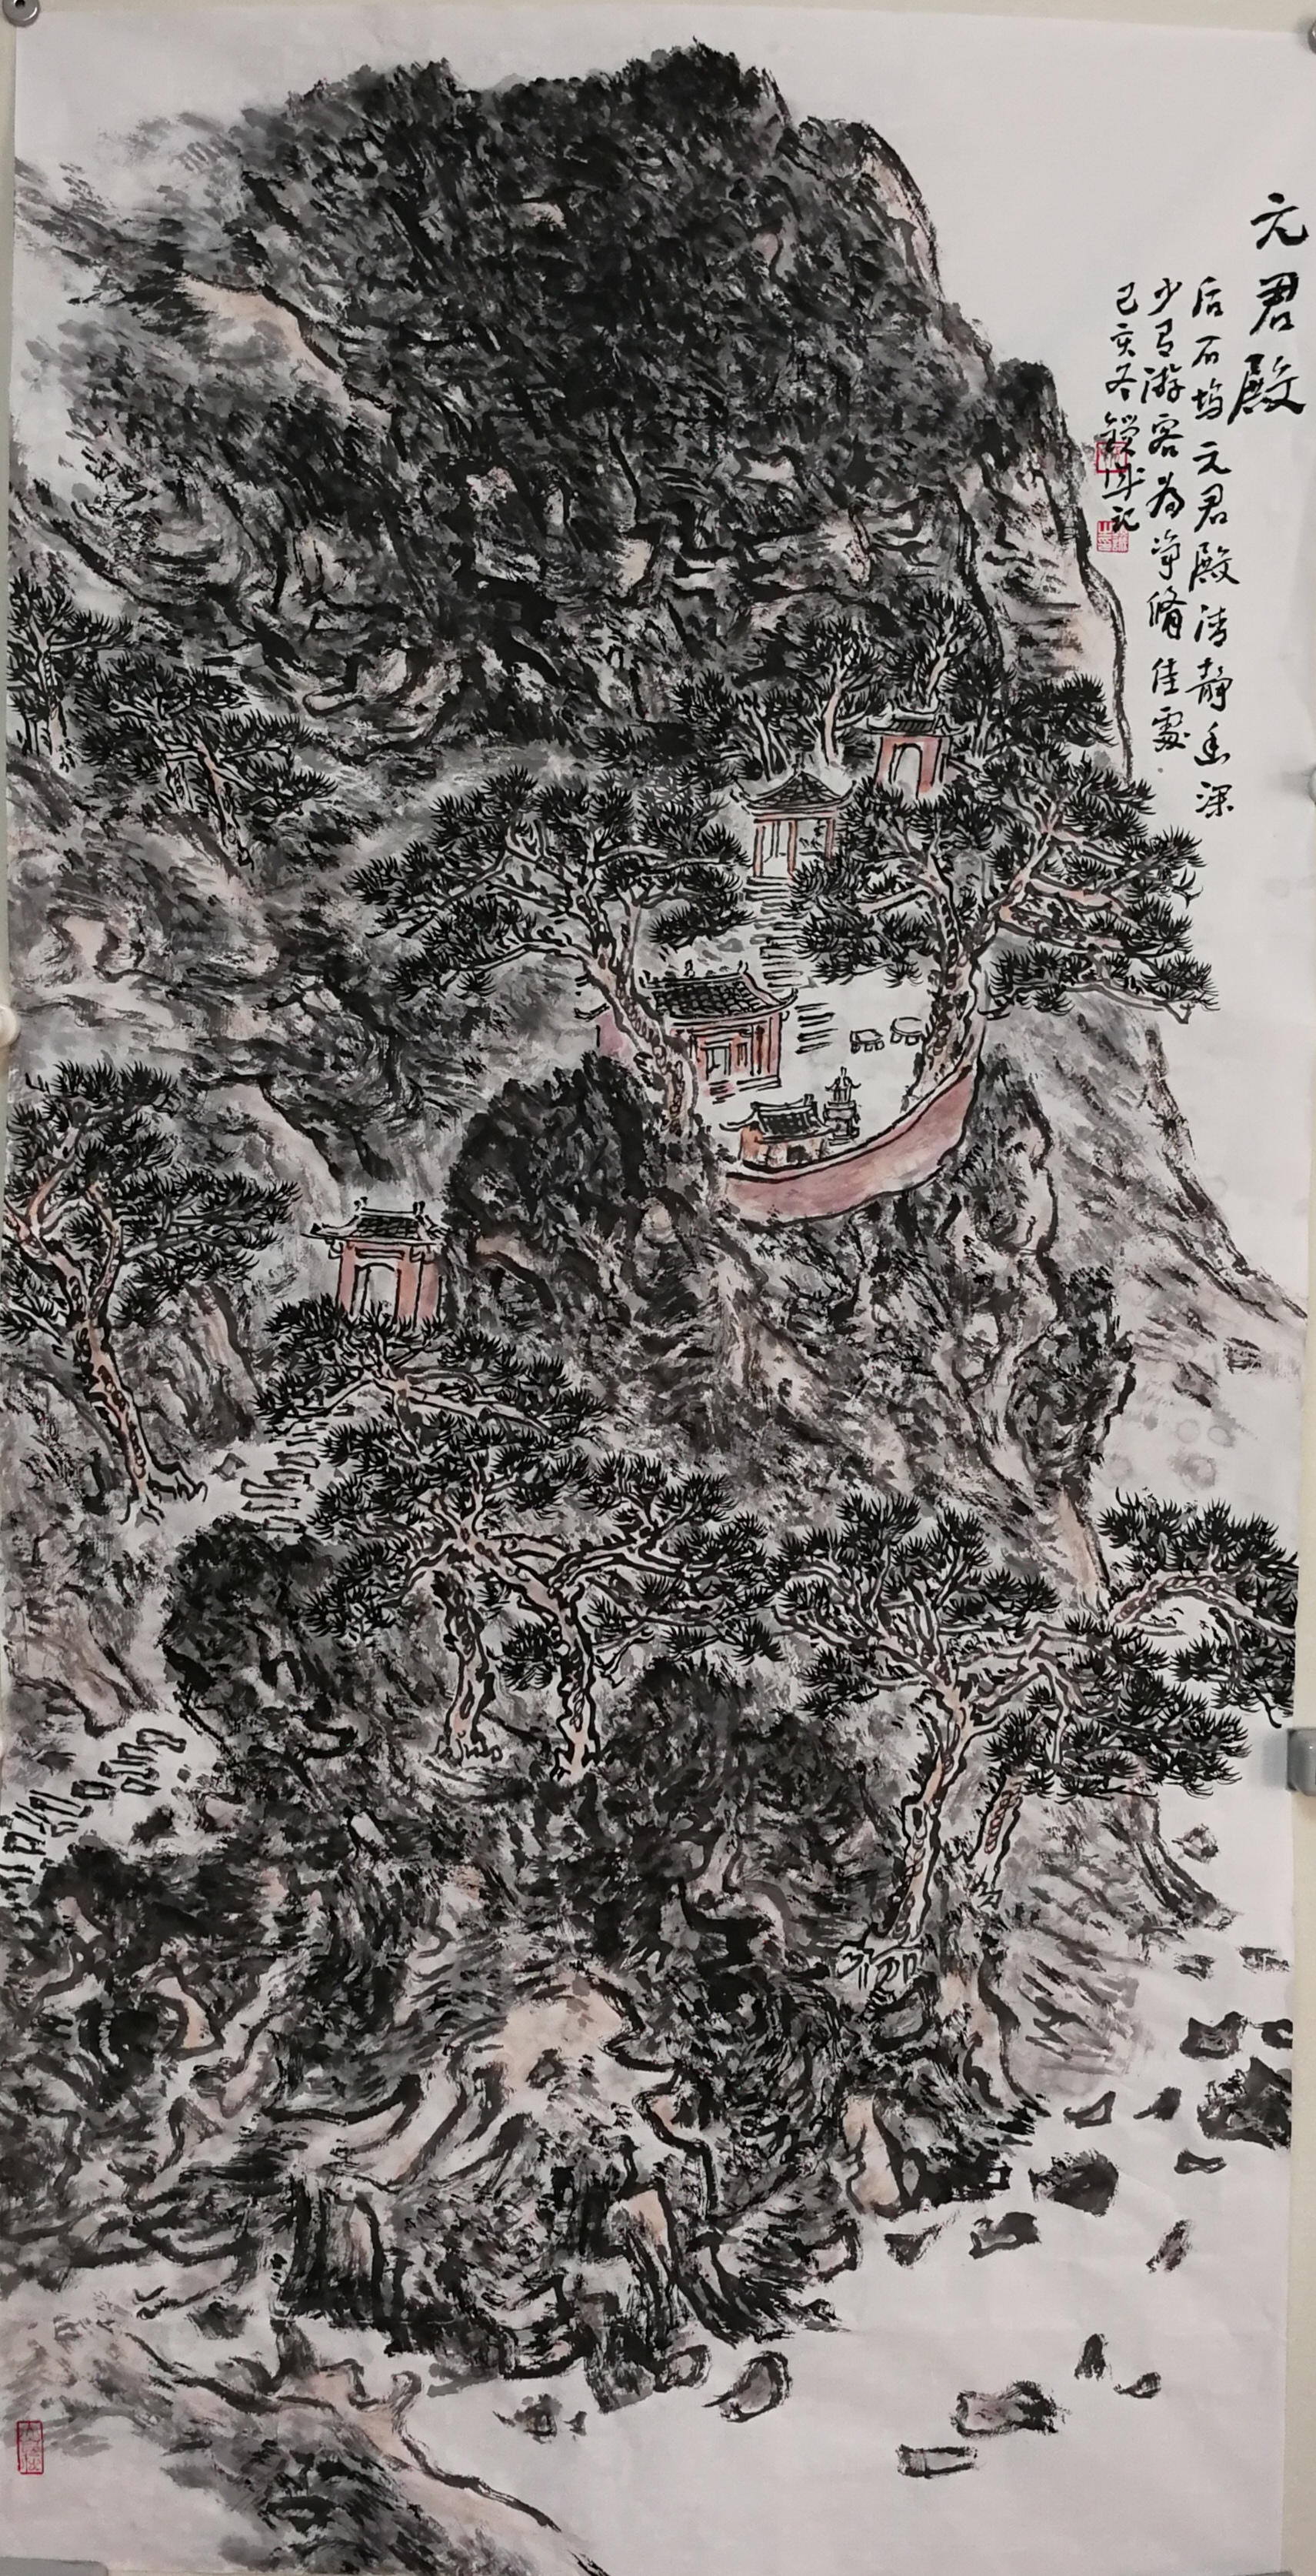 元君殿
后石坞元君殿清静幽深
少有游客为净修佳处
己亥冬 年记